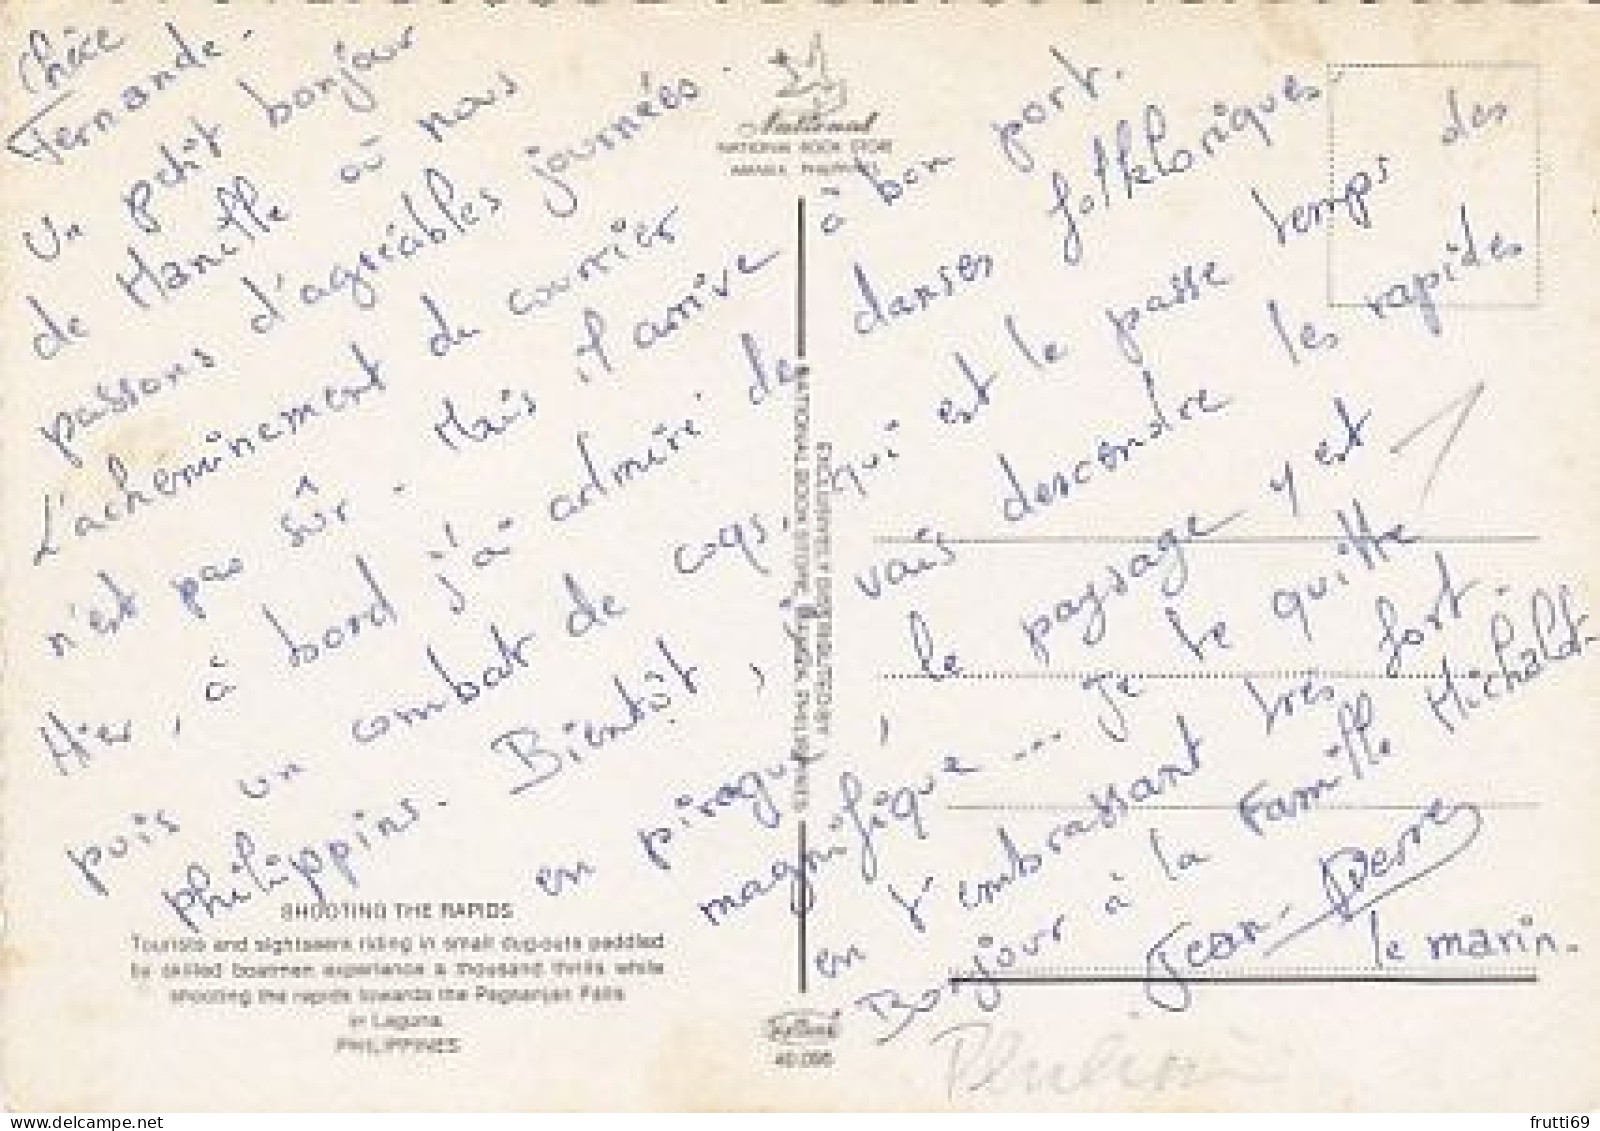 Chère
Fernande.
Un petit bonjour
de Manille où nous
passons d'agréables journées.
L'acheminement du courrier
n'est pas sûr. Mais il arrive à bon port.
Hier, à bord j'ai admiré de danses folkloriques.
puis un combat de coqs, qui est le passe temps des
philippins. Bientôt, vais descendre les rapides
en pirogue, le paysage y est
magnifique.... Je te quitte
en t'embrassant très fort.
Bonjour à la Famille Michaldt.
Jean-Pierre
le marin.
1
National
NATIONAL BOOK STORE
MANILA, PHILIPPINES
EXCLUSIVELY DISTRIBUTED BY
NATIONAL BOOK STORE, MANILA, PHILIPPINES
SHOOTING THE RAPIDS
Tourists and sightseers riding in small dug-outs paddled
by skilled boatmen experience a thousand thrills while
shooting the rapids towards the Pagsanjan Falls
in Laguna
PHILIPPINES
40.095
delcampe.net
frutti69